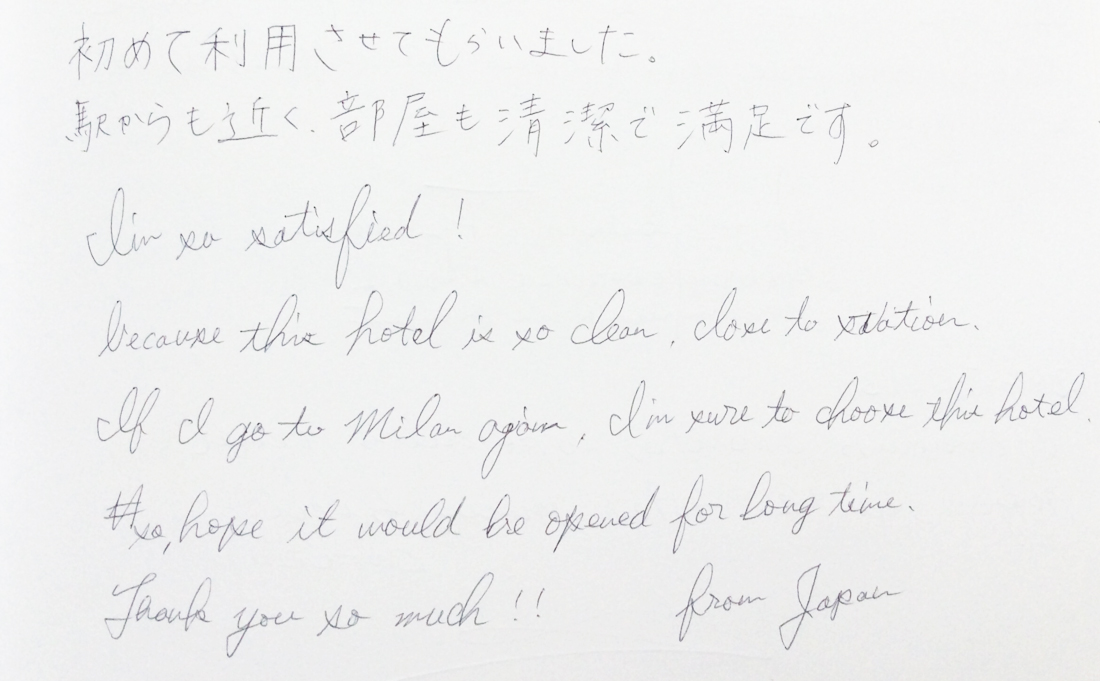 初めて利用させてもらいました。
駅からも近く、部屋も清潔で満足です。
I'm so satisfied !
because this hotel is so clean, close to station.
If I go to Milan again, I'm sure to choose this hotel.
so, hope it would be opened for long time.
Thank you so much !!
from Japan